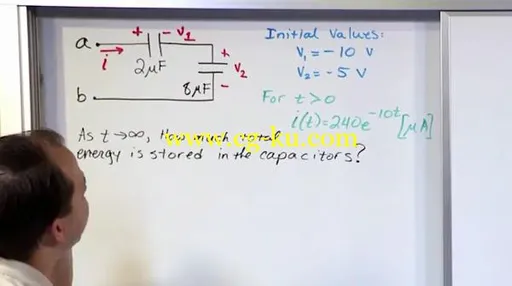 a
+ - V₁
i
2μF
+
V₂
-
8μF
b
Initial Values:
V₁ = -10 V
V₂ = -5 V
For t > 0
i(t) = 240e^-10t [μA]
As t→∞, How much total
energy is stored in the capacitors?
www.cg-ku.com